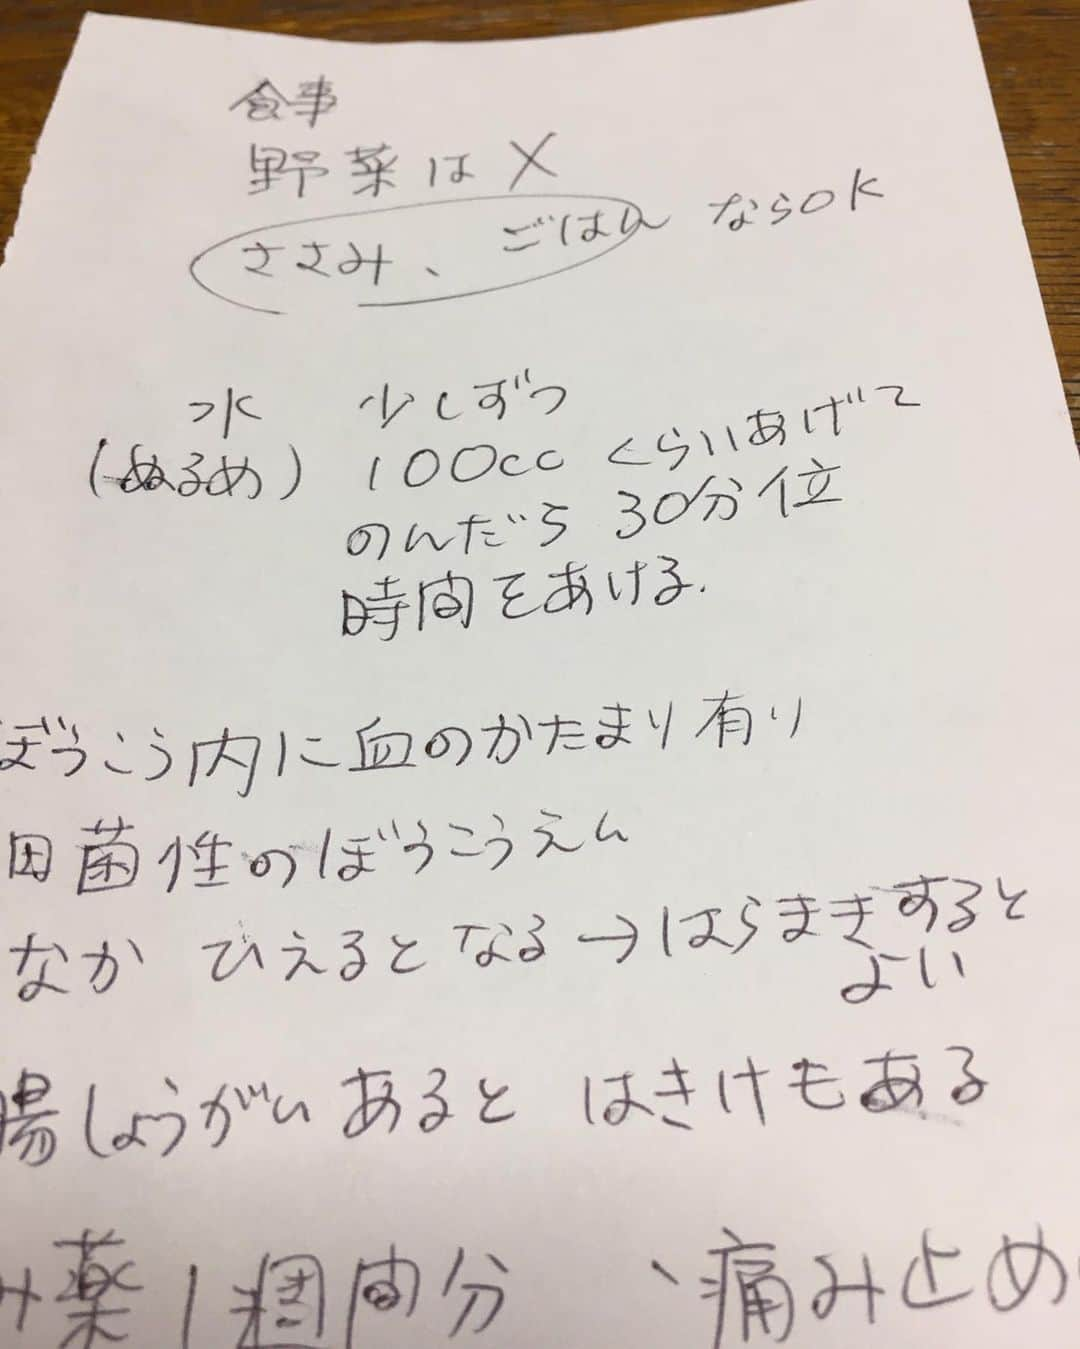 食事
野菜は×
ささみ、ごはんならOK
水 少しずつ
(ぬるめ) 100ccくらいあげて
のんだら30分位
時間をあける.
ぼうこう内に血のかたまり有り
菌性のぼうこうえん
なか ひえるとなる→はらまきすると
よい
腸しょうがいあると はきけもある
み薬1週間分 、痛み止め